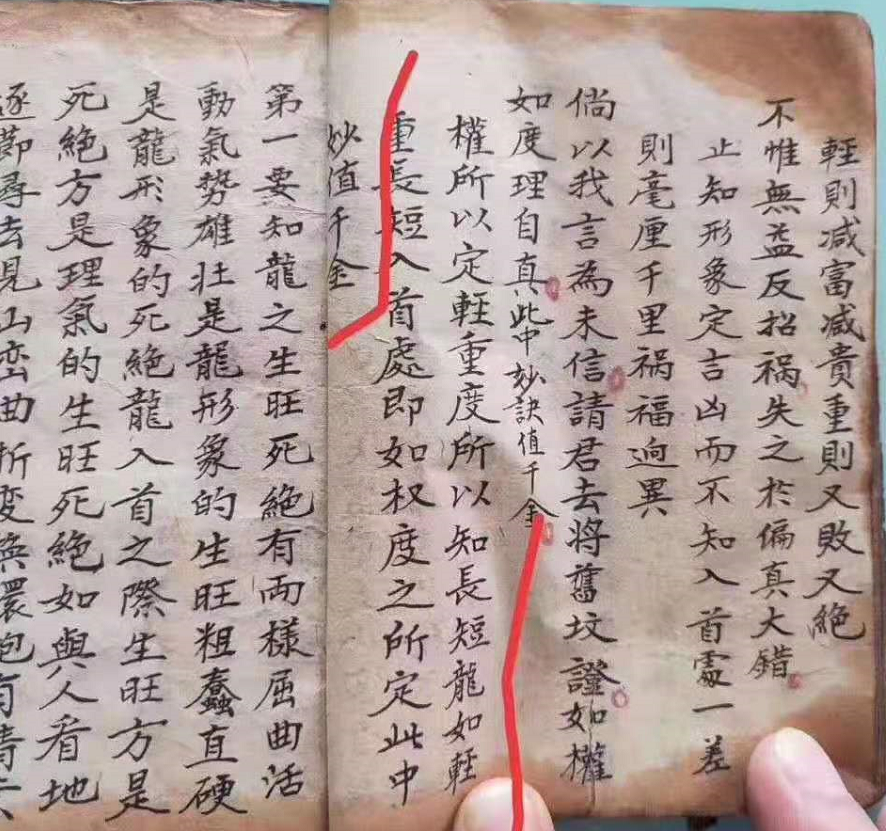 輕則减富减貴重則又敗又絕
不惟無益反招禍失之於偏真大錯
止知形象定言凶而不知入首處一差
則毫厘千里禍福逈異
倘以我言為未信請君去將舊坟證如權
如度理自真此中妙訣值千金
權所以定輕重度所以知長短龍如輕
重長短入首處即如权度之所定此中
妙值千金
第一要知龍之生旺死絕有両樣屈曲活
動氣勢雄壮是龍形象的生旺粗蠢直硬
是龍形象的死絕龍入首之際生旺方是
死絕方是理氣的生旺死絕如與人看地
逐節尋去見山巒曲折变換環抱有情